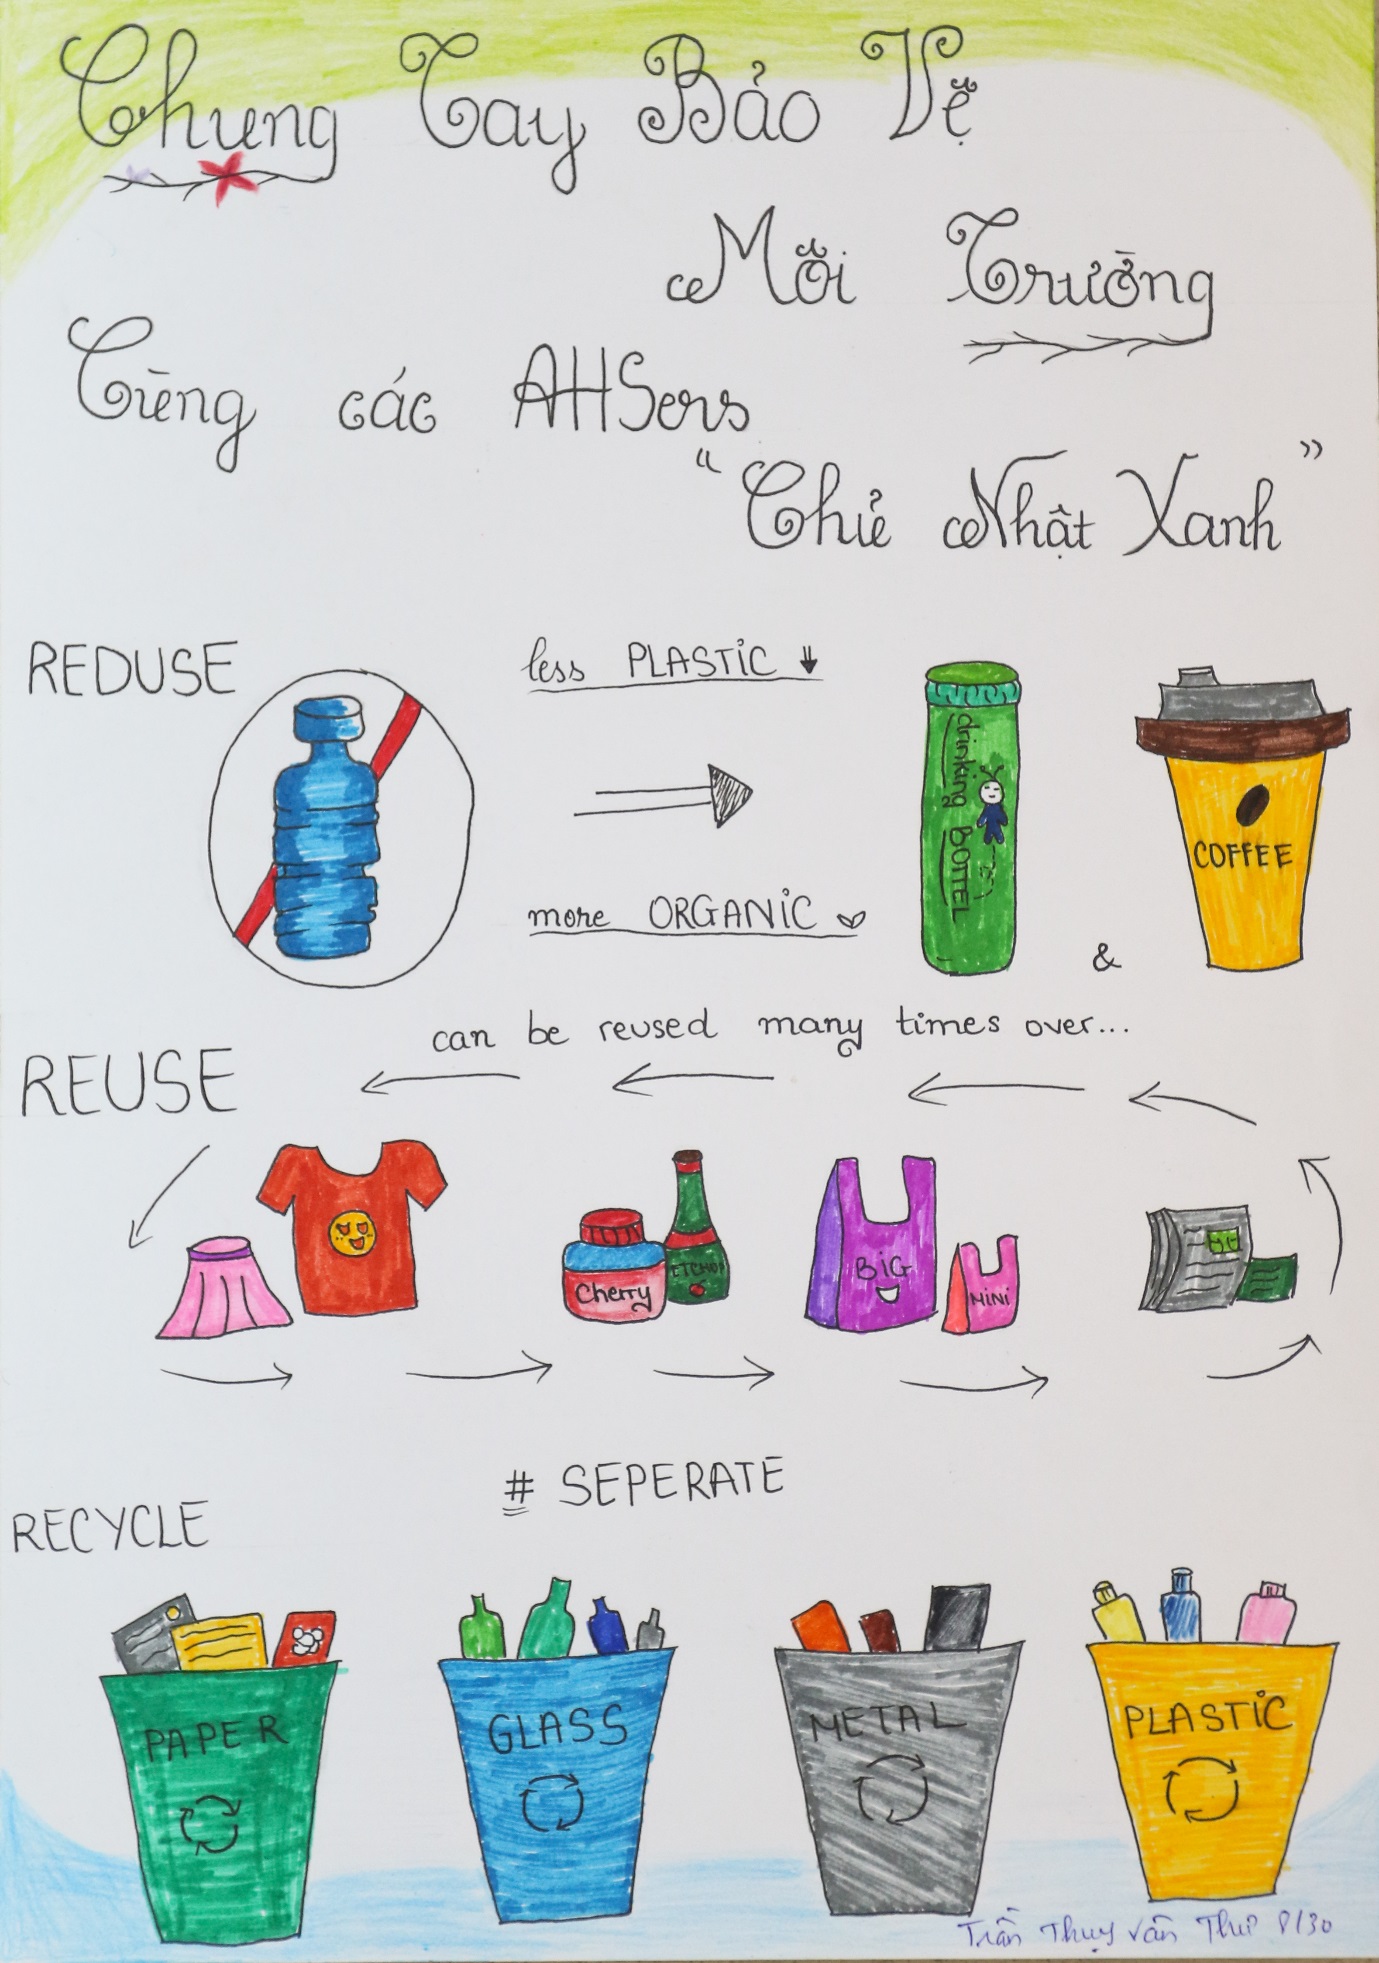 Chung Tay Bảo Vệ
Môi Trường
Cùng các AHSers
"Chủ Nhật Xanh"
REDUSE
less PLASTIC
drinking BOTTEL
COFFEE
more ORGANIC
&
can be reused many times over...
REUSE
Cherry
BIG
MINI
# SEPERATE
RECYCLE
PAPER
GLASS
METAL
PLASTIC
Trần Thụy Vân Thư 8/30